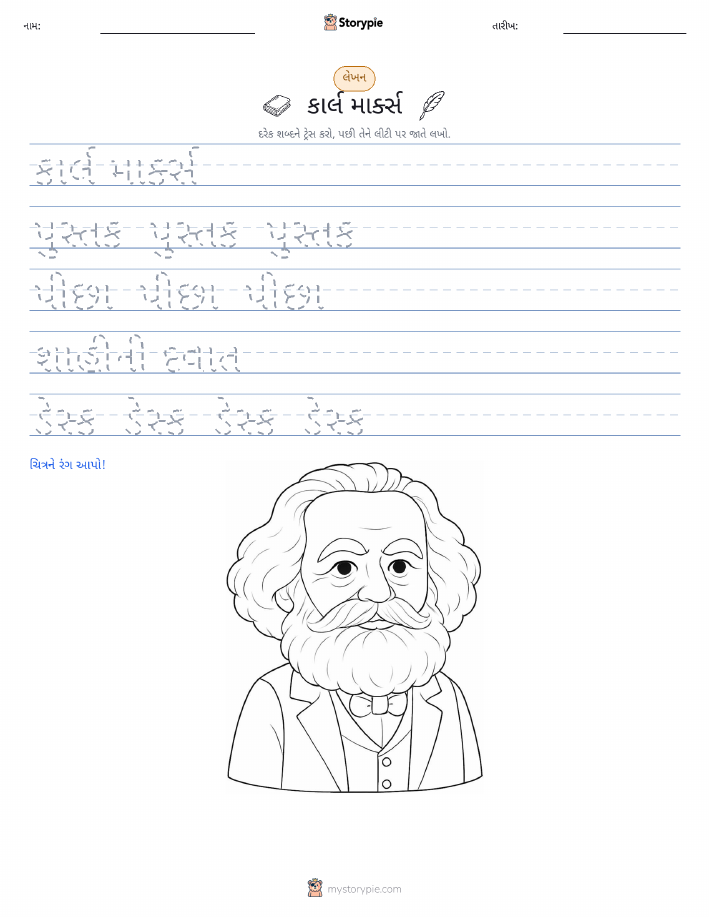 નામ: Storypie તારીખ:
લેખન
કાર્લ માર્ક્સ
દરેક શબ્દને ટ્રેસ કરો, પછી તેને લીટી પર જાતે લખો.
કાર્લ માર્ક્સ
પુસ્તક પુસ્તક પુસ્તક
પીછા પીછા પીછા
શાહીની દવાત
ડેસ્ક ડેસ્ક ડેસ્ક ડેસ્ક
ચિત્રને રંગ આપો!
mystorypie.com